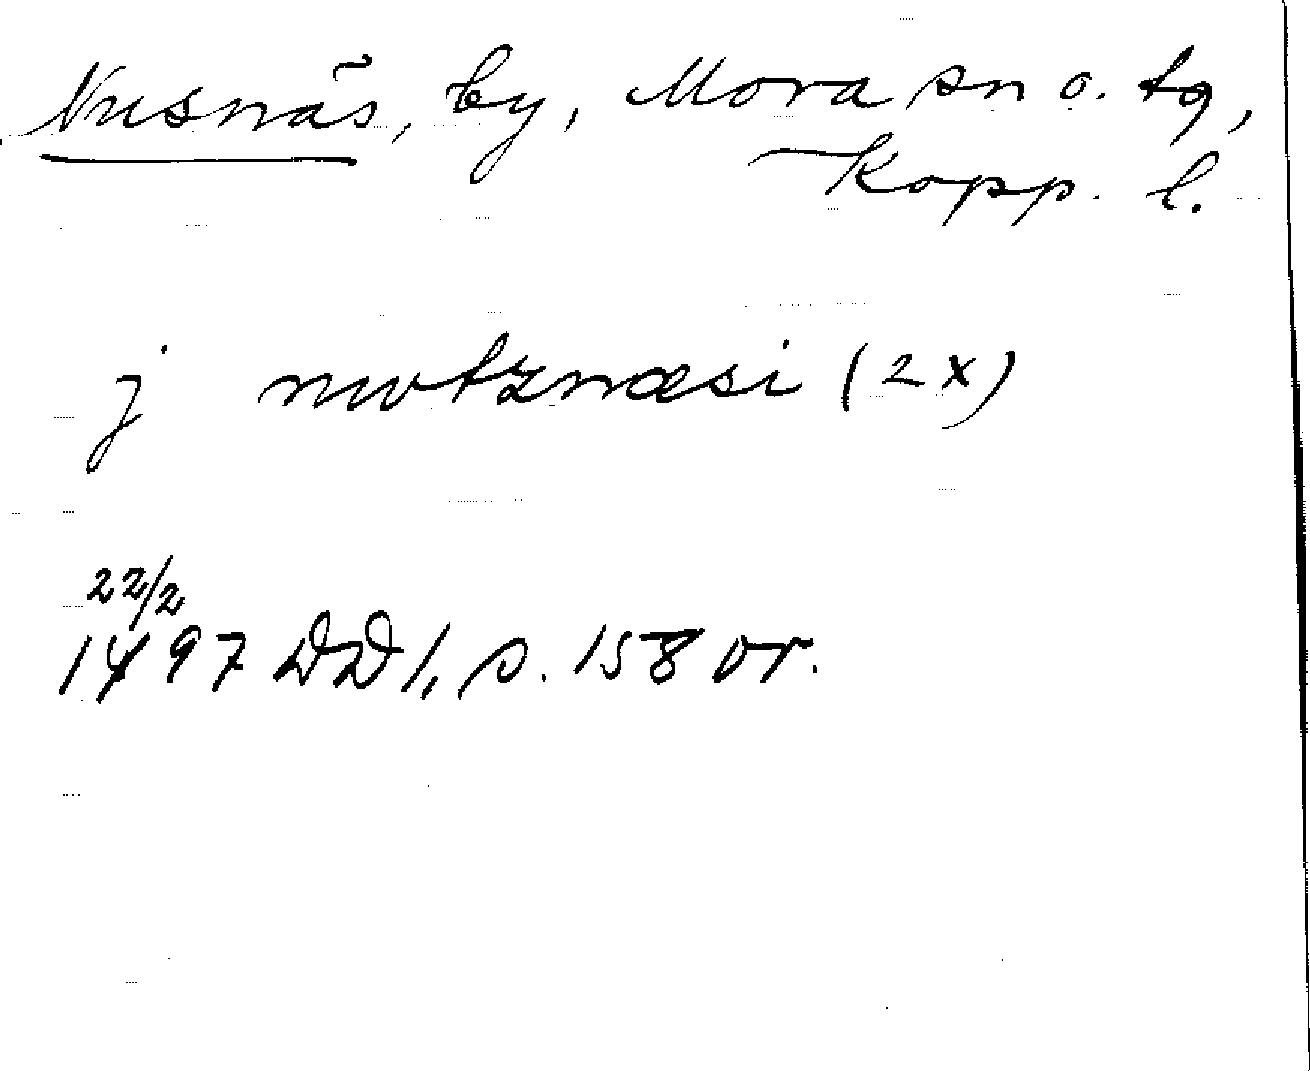 Nusnäs, by, Mora sn o. tg,
Kopp. l.
j nwtznæsi (2x)
22/2
1497 DD 1, s. 158 or.